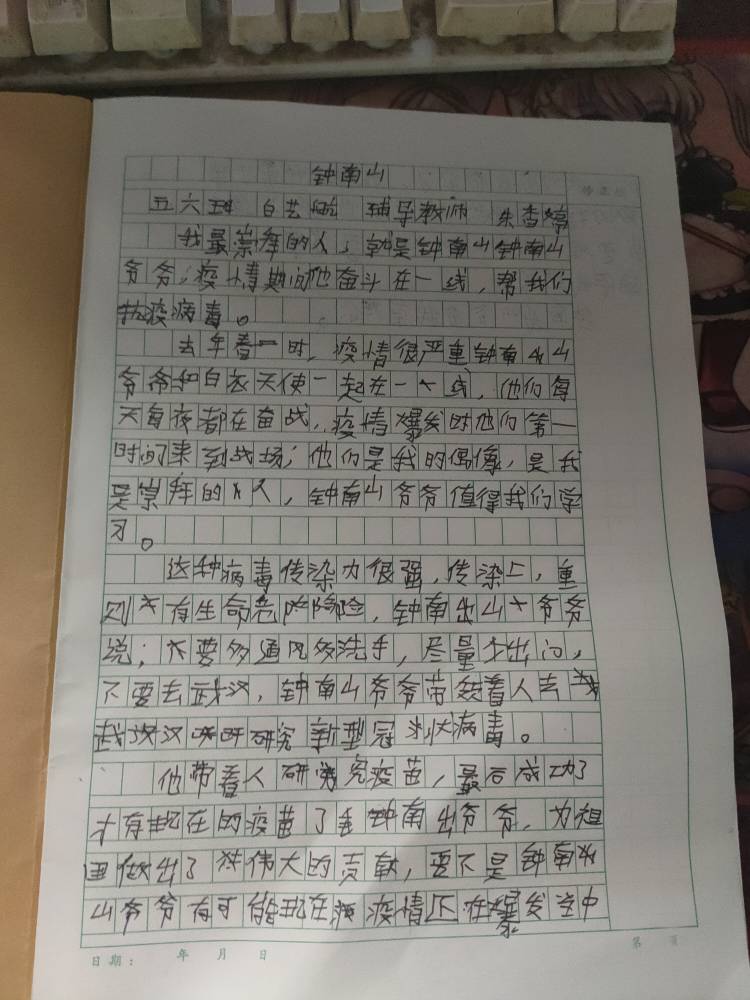 钟南山
五六班 白艺 辅导教师 朱香婷
我最崇拜的人，就是钟南山钟南山
爷爷，疫情期间他奋斗在一线，帮我们
抗疫病毒。
去年春一时，疫情很严重钟南山
爷爷和白衣天使一起在一线，他们每
天每夜都在奋战，疫情爆发时他们第一
时间来到战场；他们是我的偶像，是我
是崇拜的人，钟南山爷爷值得我们学
习。
这种病毒传染力很强，传染上，重
则有生命危险，钟南山爷爷
说；要多通风多洗手，尽量少出门，
不要去武汉，钟南山爷爷带着人去
武汉研究新型冠状病毒。
他带着人研究疫苗，最后成功了
才有现在的疫苗了钟南山爷爷，为祖
国做出了伟大的贡献，要不是钟南
山爷爷有可能现在疫情还在爆发当中
日期： 年 月 日
第 页